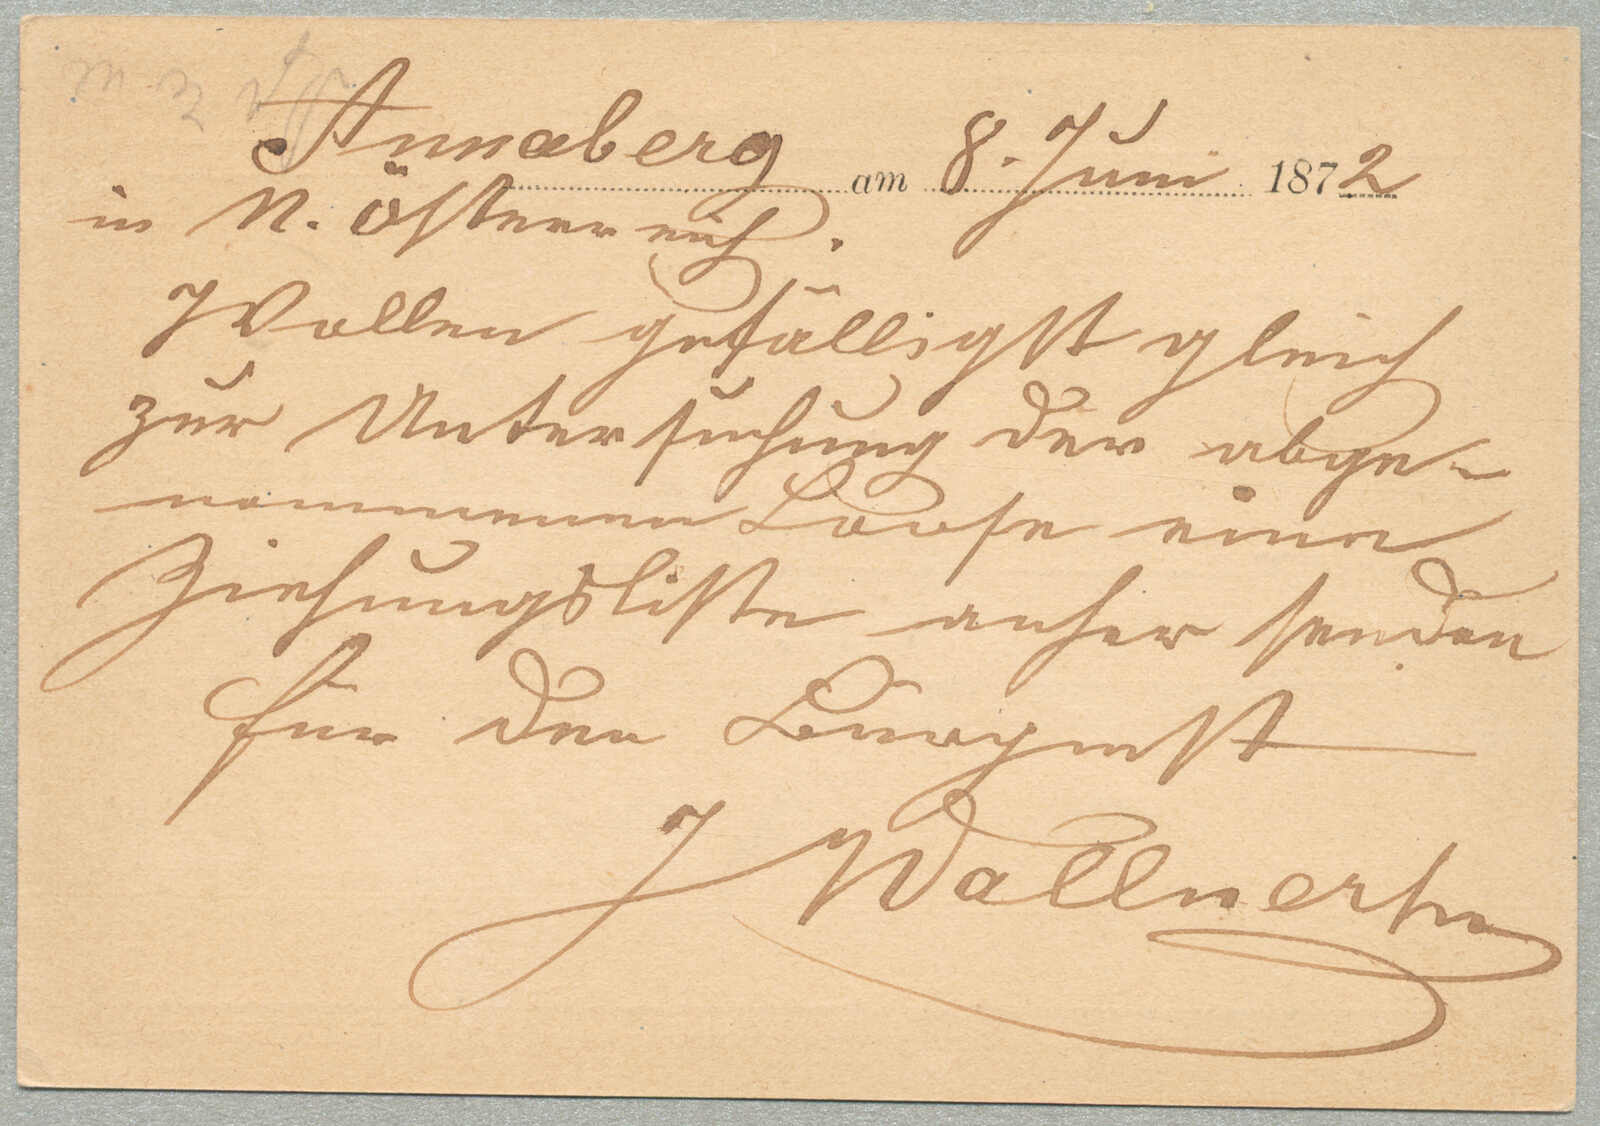 Annaberg am 8. Juni 1872
in N. Österreich.
Wollen gefälligst gleich
zur Untersuchung der abge-
nommenen Loose eine
Ziehungsliste anher senden
für den
J Wallner